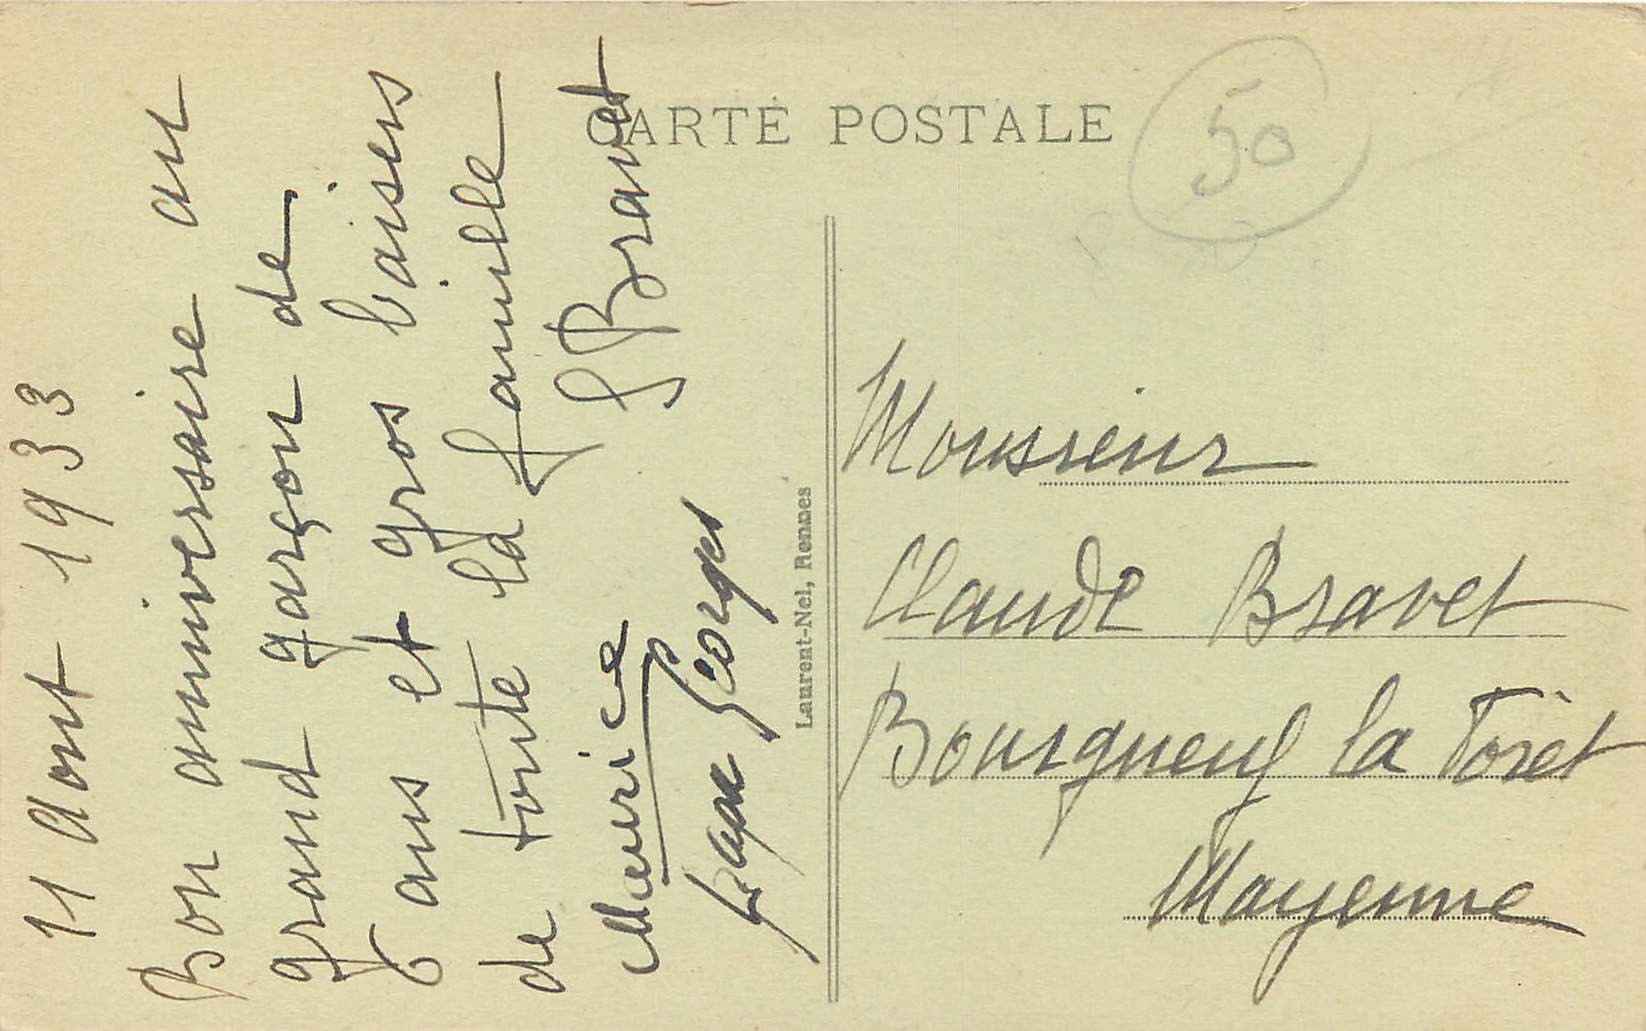 CARTE POSTALE
50
11 Aout 1933
Bon anniversaire au
grand garçon de
6 ans et gros baisers
de toute la famille
Bravet
Maurice
Papa Georges
Laurent-Nel, Rennes
Monsieur
Claude Bravet
Bourgneuf la Forêt
Mayenne